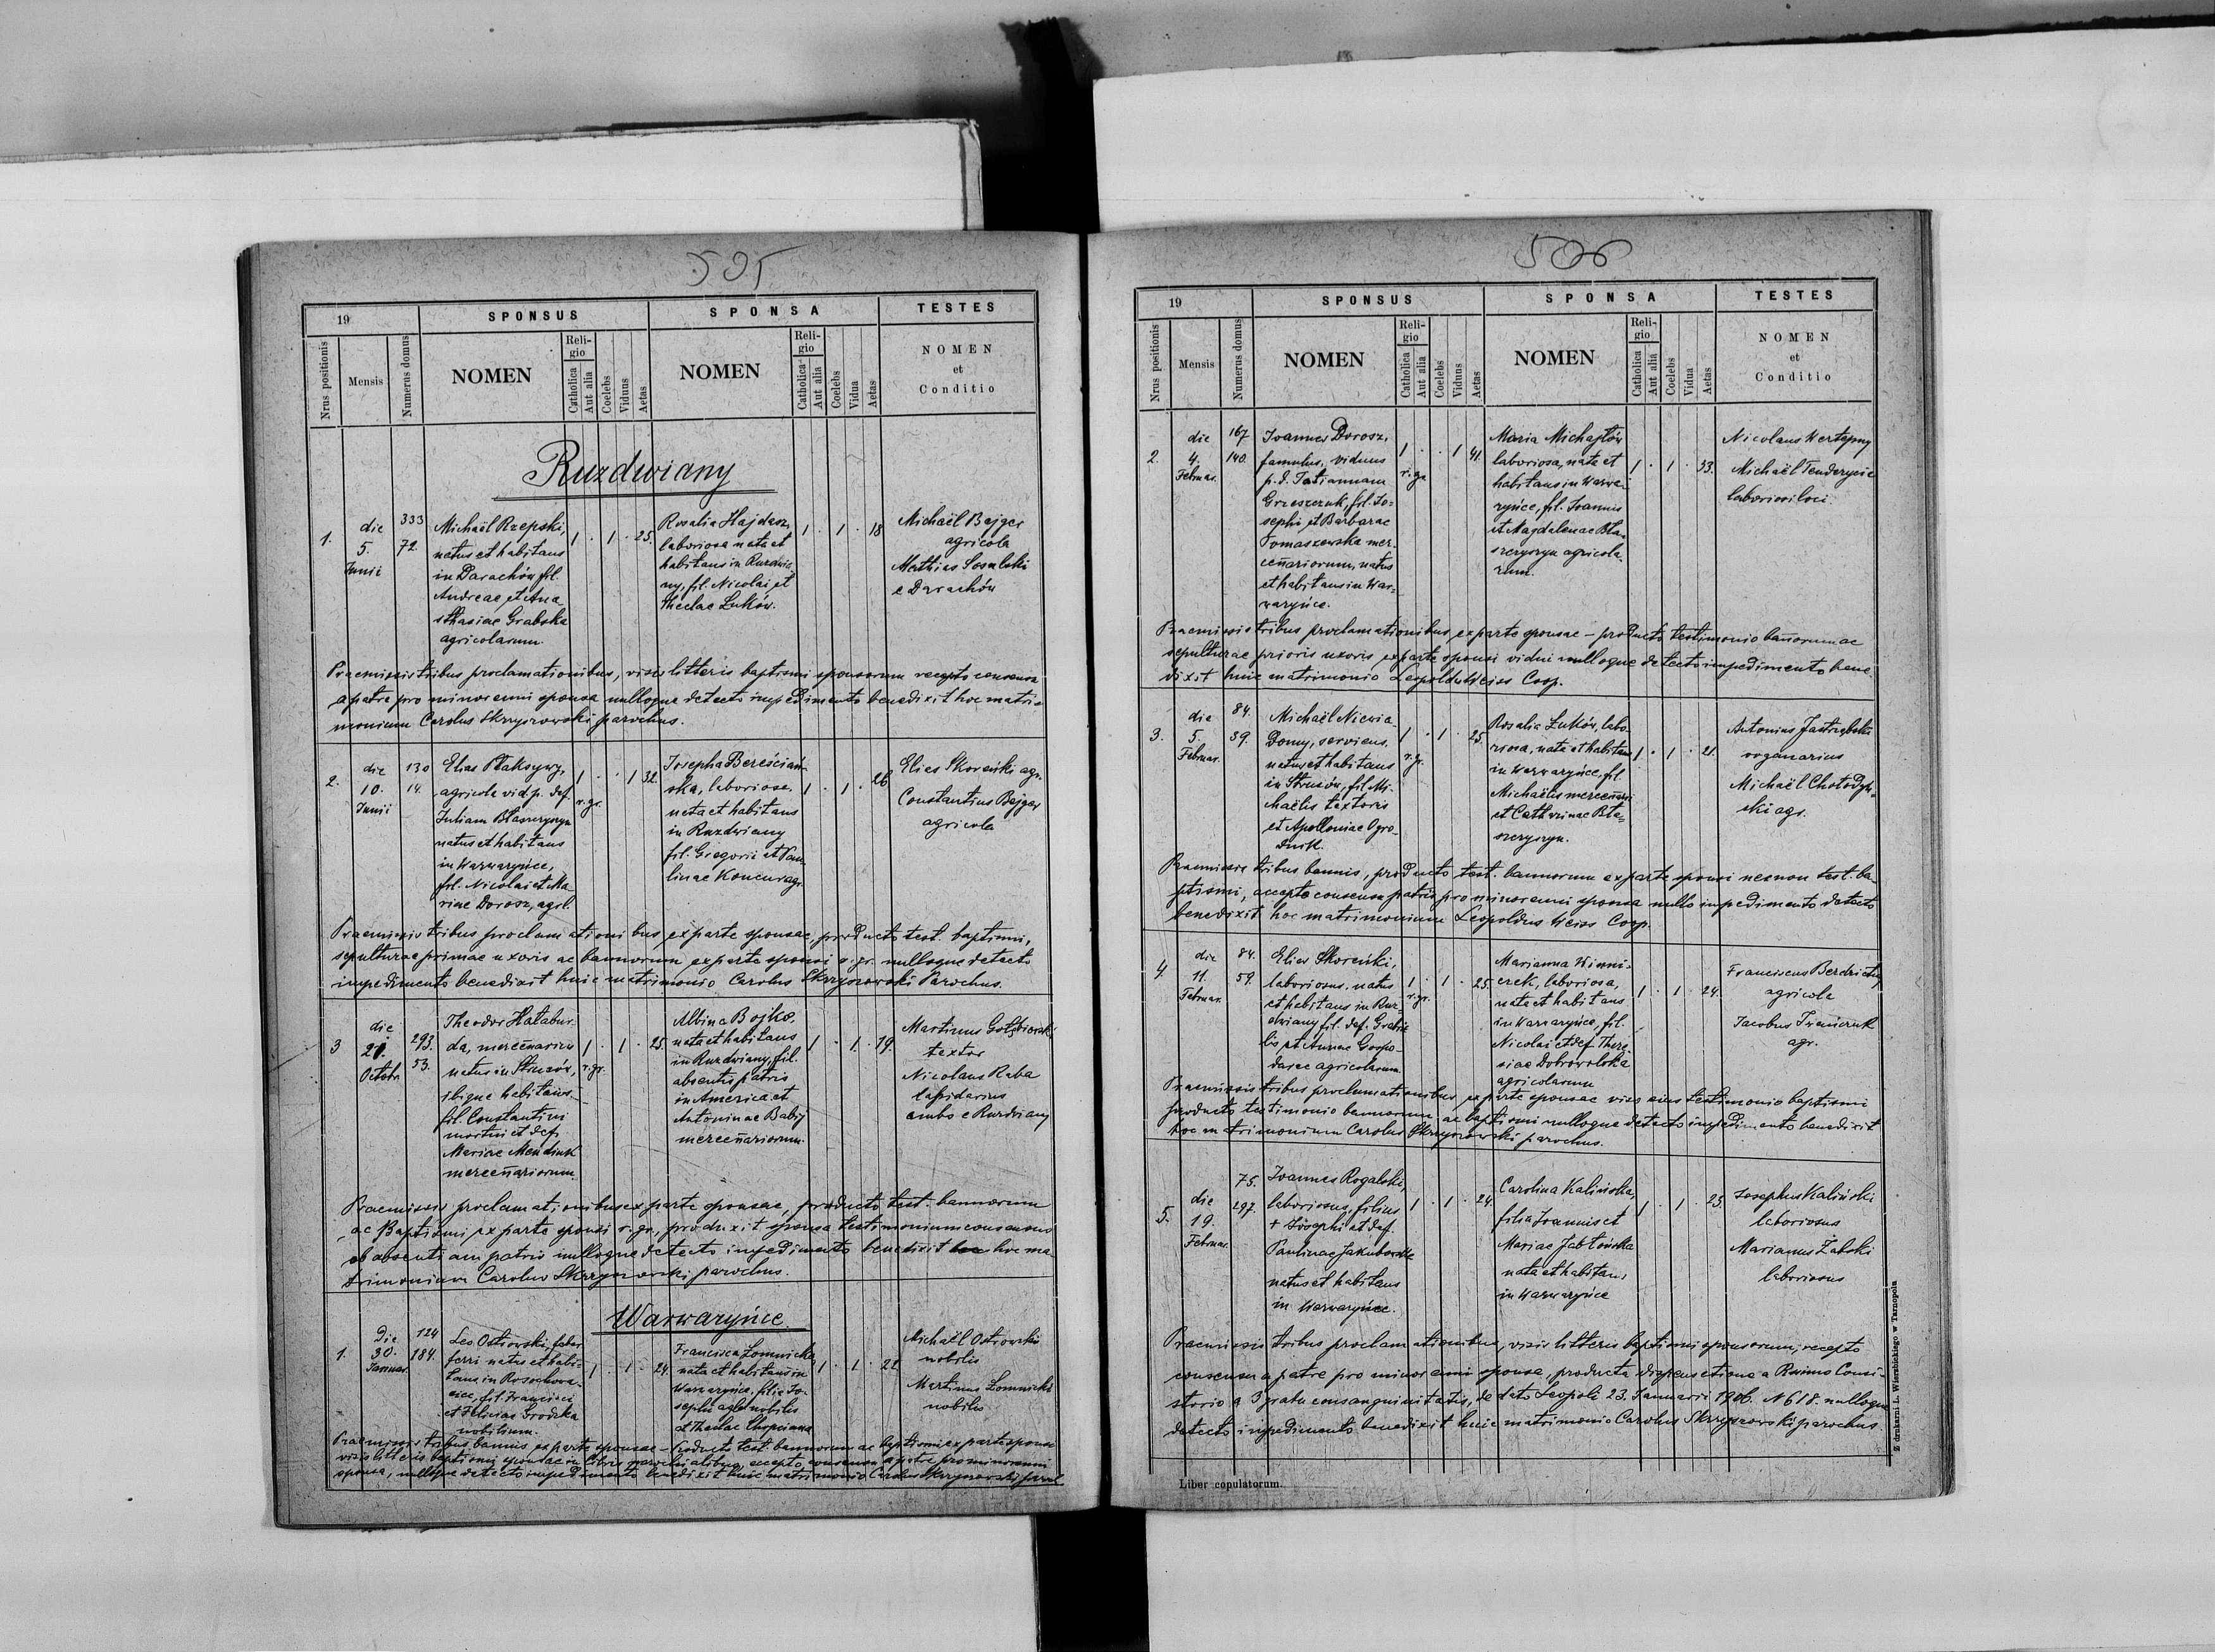 505
19
SPONSUS
SPONSA
TESTES
Nrus positionis
Mensis
Numerus domus
NOMEN
Religio
Catholica
Aut alia
Coelebs
Viduus
Aetas
NOMEN
Religio
Catholica
Aut alia
Coelebs
Vidua
Aetas
NOMEN
et
Conditio
Ruzdwiany
1.
die
5.
Junii
333
72.
Michaël Rzepski,
natus et habitans
in Darachów, fil.
Andreae et Ana
sthasiae Grabska
agricolarum.
1 . 1 . 25.
Rosalia Hajdasz,
laboriosa nata et
habitans in Ruzdwia
ny, fil. Nicolai et
Theclae Luków.
1 . 1 . 18
Michaël Bajger
agricola
Mathias Sosulski
e Darachów
Praemissis tribus proclamationibus, visis litteris baptismi sponsorum recepto consensu
a patre pro minorenni sponsa nulloque detecto impedimento benedixit hoc matri=
monium Carolus Skrzyszowski parochus.
2.
die
10.
Junii
130
14.
Elias Płaksywy,
agricola vid. p. def.
Juliam Błaszczyszyn
natus et habitans
in Warwaryńce,
fil. Nicolai et Ma
riae Dorosz, agrl.
1 . . 1 32.
r. gr.
Josepha Bereściań=
ska, laboriosa.
nata et habitans
in Ruzdwiany
fil. Gregorii et Pau
linae Koncur agr.
1 . 1 . 26
Elias Skoreński agr.
Constantinus Bajger
agricola
Praemissis tribus proclamationibus ex parte sponsae, producto test. baptismi,
sepulturae primae uxoris ac bannorum ex parte sponsi r. gr. nulloque detecto
impedimento benedixit huic matrimonio Carolus Skrzyszowski Parochus.
3
die
21.
Octobr.
293.
53.
Theodor Hałabur
da, mercenarius
natus in Strusów,
ibique habitans
fil. Constantini
mortui et def.
Mariae Mendiuk
mercenariorum
1 . 1 . 25.
r. gr.
Albina Bojko.
nata et habitans
in Ruzdwiany, fil.
absentis patris
in America et
Antoninae Babij
mercenariorum.
1 . 1 . 19.
Martinus Gołębiowski
textor
Nicolaus Raba
lapidarius
ambo e Ruzdwiany
Praemissis proclamationibus ex parte sponsae, producto test. bannorum
ac Baptismi ex parte sponsi r. gr., produxit sponsa testimonium consensus
ob absentiam patris nulloque detecto impedimento benedixit hoc ma
trimonium Carolus Skrzyszowski parochus.
Warwaryńce.
1.
Die
30.
Januar.
124
184.
Leo Ostrowski, faber
ferri natus et habi
tans in Rosochowa
ciec, fil. Francisci
et Feliciae Grodzka
nobilium.
1 . 1 . 24.
Francisca Łomnicka
nata et habitans in
Warwaryńce, filia Jo
sephi agr. nobilis
et Theclae
1 . 1 . 22.
Michaël Ostrowski
nobilis
Martinus Łomnicki
nobilis
Praemissis tribus bannis ex parte sponsae - Producto test. bannorum ac baptismi ex parte sponsi
visis litteris baptismi sponsae in libris parochialibus, accepto consensu a patre pro minorenni
sponsa, nulloque detecto impedimento benedixit huic matrimonio Carolus Skrzyszowski paroch.
506
19
SPONSUS
SPONSA
TESTES
Nrus positionis
Mensis
Numerus domus
NOMEN
Religio
Catholica
Aut alia
Coelebs
Viduus
Aetas
NOMEN
Religio
Catholica
Aut alia
Coelebs
Vidua
Aetas
NOMEN
et
Conditio
2.
die
4.
Februar.
167
140.
Joannes Dorosz,
famulus, viduus
p. d. Tatiannam
Grzeszczuk, fil. Jo=
sephi et Barbarae
Tomaszewska mer.
cenariorum, natus
et habitans in War=
waryńce.
1 . . 1 41.
r. gr.
Maria Michajłów
laboriosa, nata et
habitans in Warwa=
ryńce, fil. Joannis
et Magdalenae Bła=
szczyszyn agricola.
rum.
1 . 1 . 33.
Nicolaus Wertepny
Michaël Tenderycic
laboriosi loci.
Praemissis tribus proclamationibus ex parte sponsae - producto testimonio bannorum ac
sepulturae prioris uxoris ex parte sponsi vidui nulloque detecto impedimento bene
dixit huic matrimonio Leopoldus Weiss Coop.
3.
die
5.
Februar.
84.
39.
Michaël Niewia
Domy, serviens,
natus et habitans
in Strusów, fil. Mi.
chaëlis textoris
et Apolloniae Ogro=
dnik.
1 . 1 . 25.
r. gr.
Rosalia Luków, labo
riosa, nata et habitans
in Warwaryńce, fil.
Michaëlis mercenarii
et Catharinae Bła=
szczyszyn.
1 . 1 . 21.
Antonius Jastrzębski
organarius
Michaël Chołodyń=
ski agr.
Praemissis tribus bannis, producto test. bannorum ex parte sponsi necnon test. ba=
ptismi, accepto consensu patris pro minorenni sponsa nullo impedimento detecto
benedixit hoc matrimonium Leopoldus Weiss Coop.
4
die
11.
Februar.
84.
59.
Elias Skoreński,
laboriosus, natus
et habitans in Ruz
dwiany fil. def. Gabrie
lis et Annae Gospo=
darec agricolarum
1 . 1 . 25.
r. gr.
Marianna Winni=
czek, laboriosa,
nata et habitans
in Warwaryńce, fil.
Nicolai et def. There
siae Dobrowolska
agricolarum
1 . 1 . 24.
Franciscus Berdzicky
agricola
Jacobus
agr.
Praemissis tribus proclamationibus ex parte sponsae viso eius testimonio baptismi
producto testimonio bannorum ac baptismi nulloque detecto impedimento benedixit
hoc matrimonium Carolus Skrzyszowski parochus.
5.
die
19.
Februar.
75.
297.
Joannes Rogalski,
laboriosus, filius
+ Josephi et def.
Paulinae Jakubowska
natus et habitans
in Warwaryńce.
1 . 1 . 24.
Carolina Kalińska,
filia Joannis et
Mariae Jabłońska
nata et habitans
in Warwaryńce
1 . 1 . 23.
Josephus Kaliński
laboriosus
Marianus Żabski
laboriosus
Praemissis tribus proclamationibus, visis litteris baptismi sponsorum, recepto
consensu a patre pro minorenni sponsa, producta dispensatione a Rssimo Consi=
storio a 3 gradu consanguinitatis, de dato Leopoli 23. Januarii 1906. N 618. nulloque
detecto impedimento benedixit huic matrimonio Carolus Skrzyszowski parochus.
Liber copulatorum.
Z drukarni L. Wierzbickiego w Tarnopolu